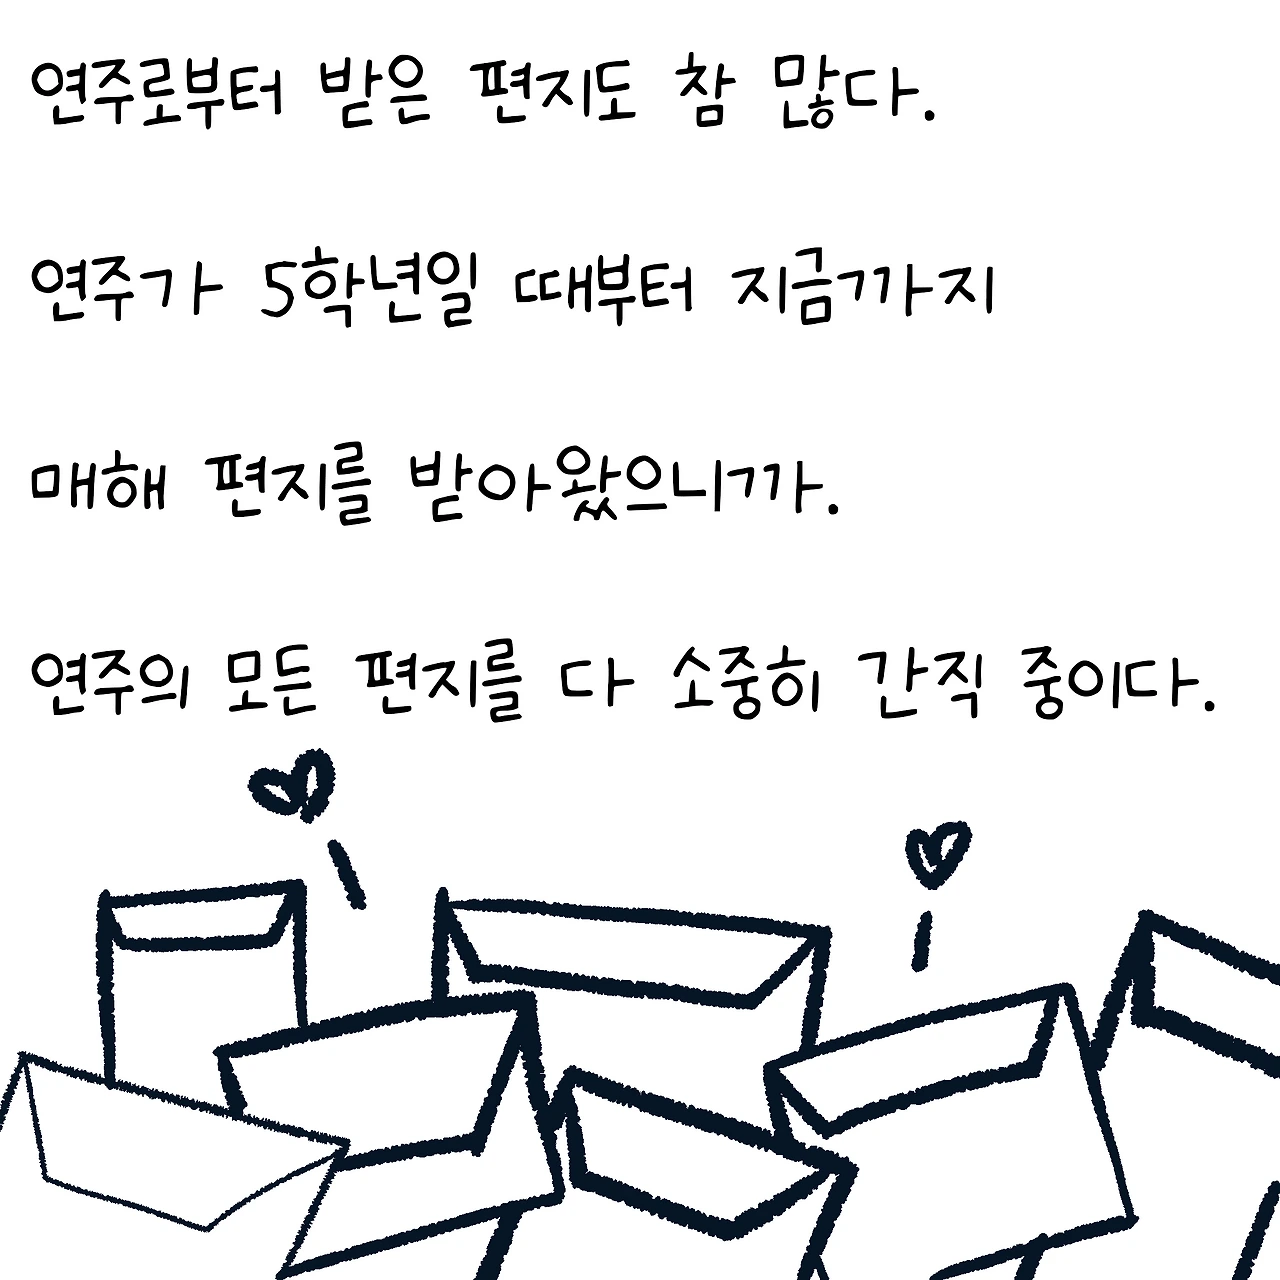 연주로부터 받은 편지도 참 많다.
연주가 5학년일 때부터 지금까지
매해 편지를 받아왔으니까.
연주의 모든 편지를 다 소중히 간직 중이다.